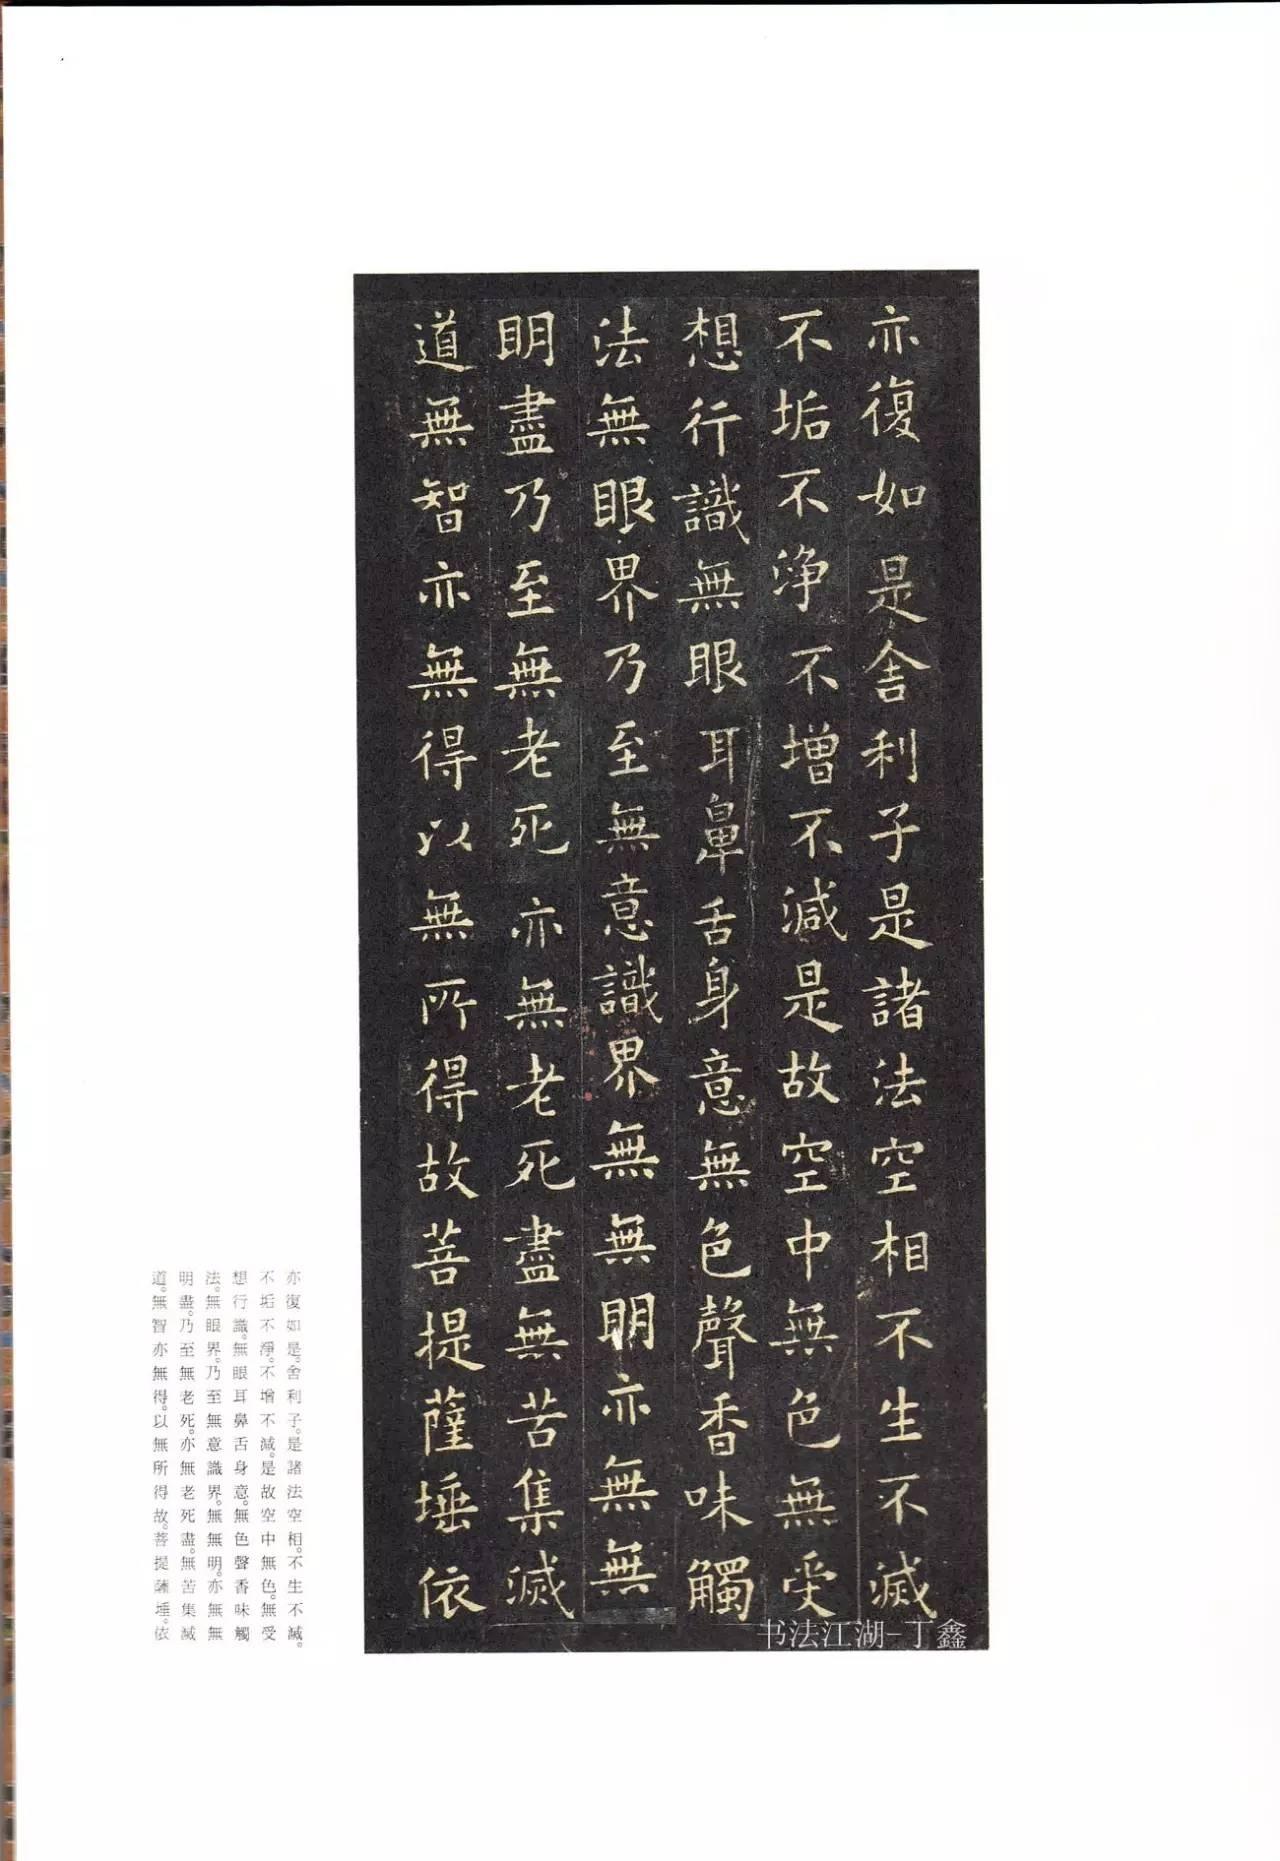 亦復如是舍利子是諸法空相不生不滅
不垢不淨不增不減是故空中無色無受
想行識無眼耳鼻舌身意無色聲香味觸
法無眼界乃至無意識界無無明亦無無
明盡乃至無老死亦無老死盡無苦集滅
道無智亦無得以無所得故菩提薩埵依
书法江湖-丁鑫
亦復如是。舍利子。是諸法空相。不生不滅。
不垢不淨。不增不減。是故空中無色。無受
想行識。無眼耳鼻舌身意。無色聲香味觸
法。無眼界。乃至無意識界。無無明。亦無無
明盡。乃至無老死。亦無老死盡。無苦集滅
道。無智亦無得。以無所得故。菩提薩埵。依